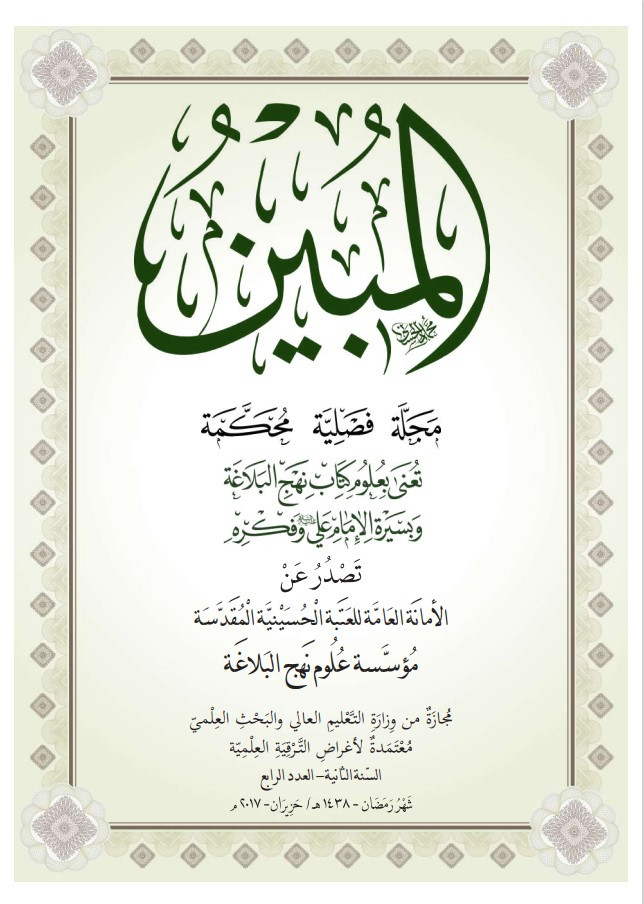 المُبِيْنُ
مَجَلَّة فَصْلِيَّة مُحَكَّمَة
تُعْنَى بِعُلُومِ كِتَابِ نَهْجِ البَلَاغَة
وَبِسِيْرَةِ الإِمَامِ عَلِي وَفِكْرِهِ
تَصْدُرُ عَنْ
الأمانَة العَامَّة للعَتَبة الْحُسَيْنِيَّة الْمُقَدَّسَة
مُؤسَّسة عُلُوم نَهج البَلاغَة
مُجازَةٌ من وِزارَةِ التَّعْلِيمِ العالي والبَحْثِ العِلْميّ
مُعْتَمَدةٌ لأغراضِ التَّرْقِيَةِ العِلْمِيَّة
السّنة الثانية – العدد الرابع
شَهْرُ رَمَضَان – ١٤٣٨ هـ / حَزِيرَان – ٢٠١٧ م